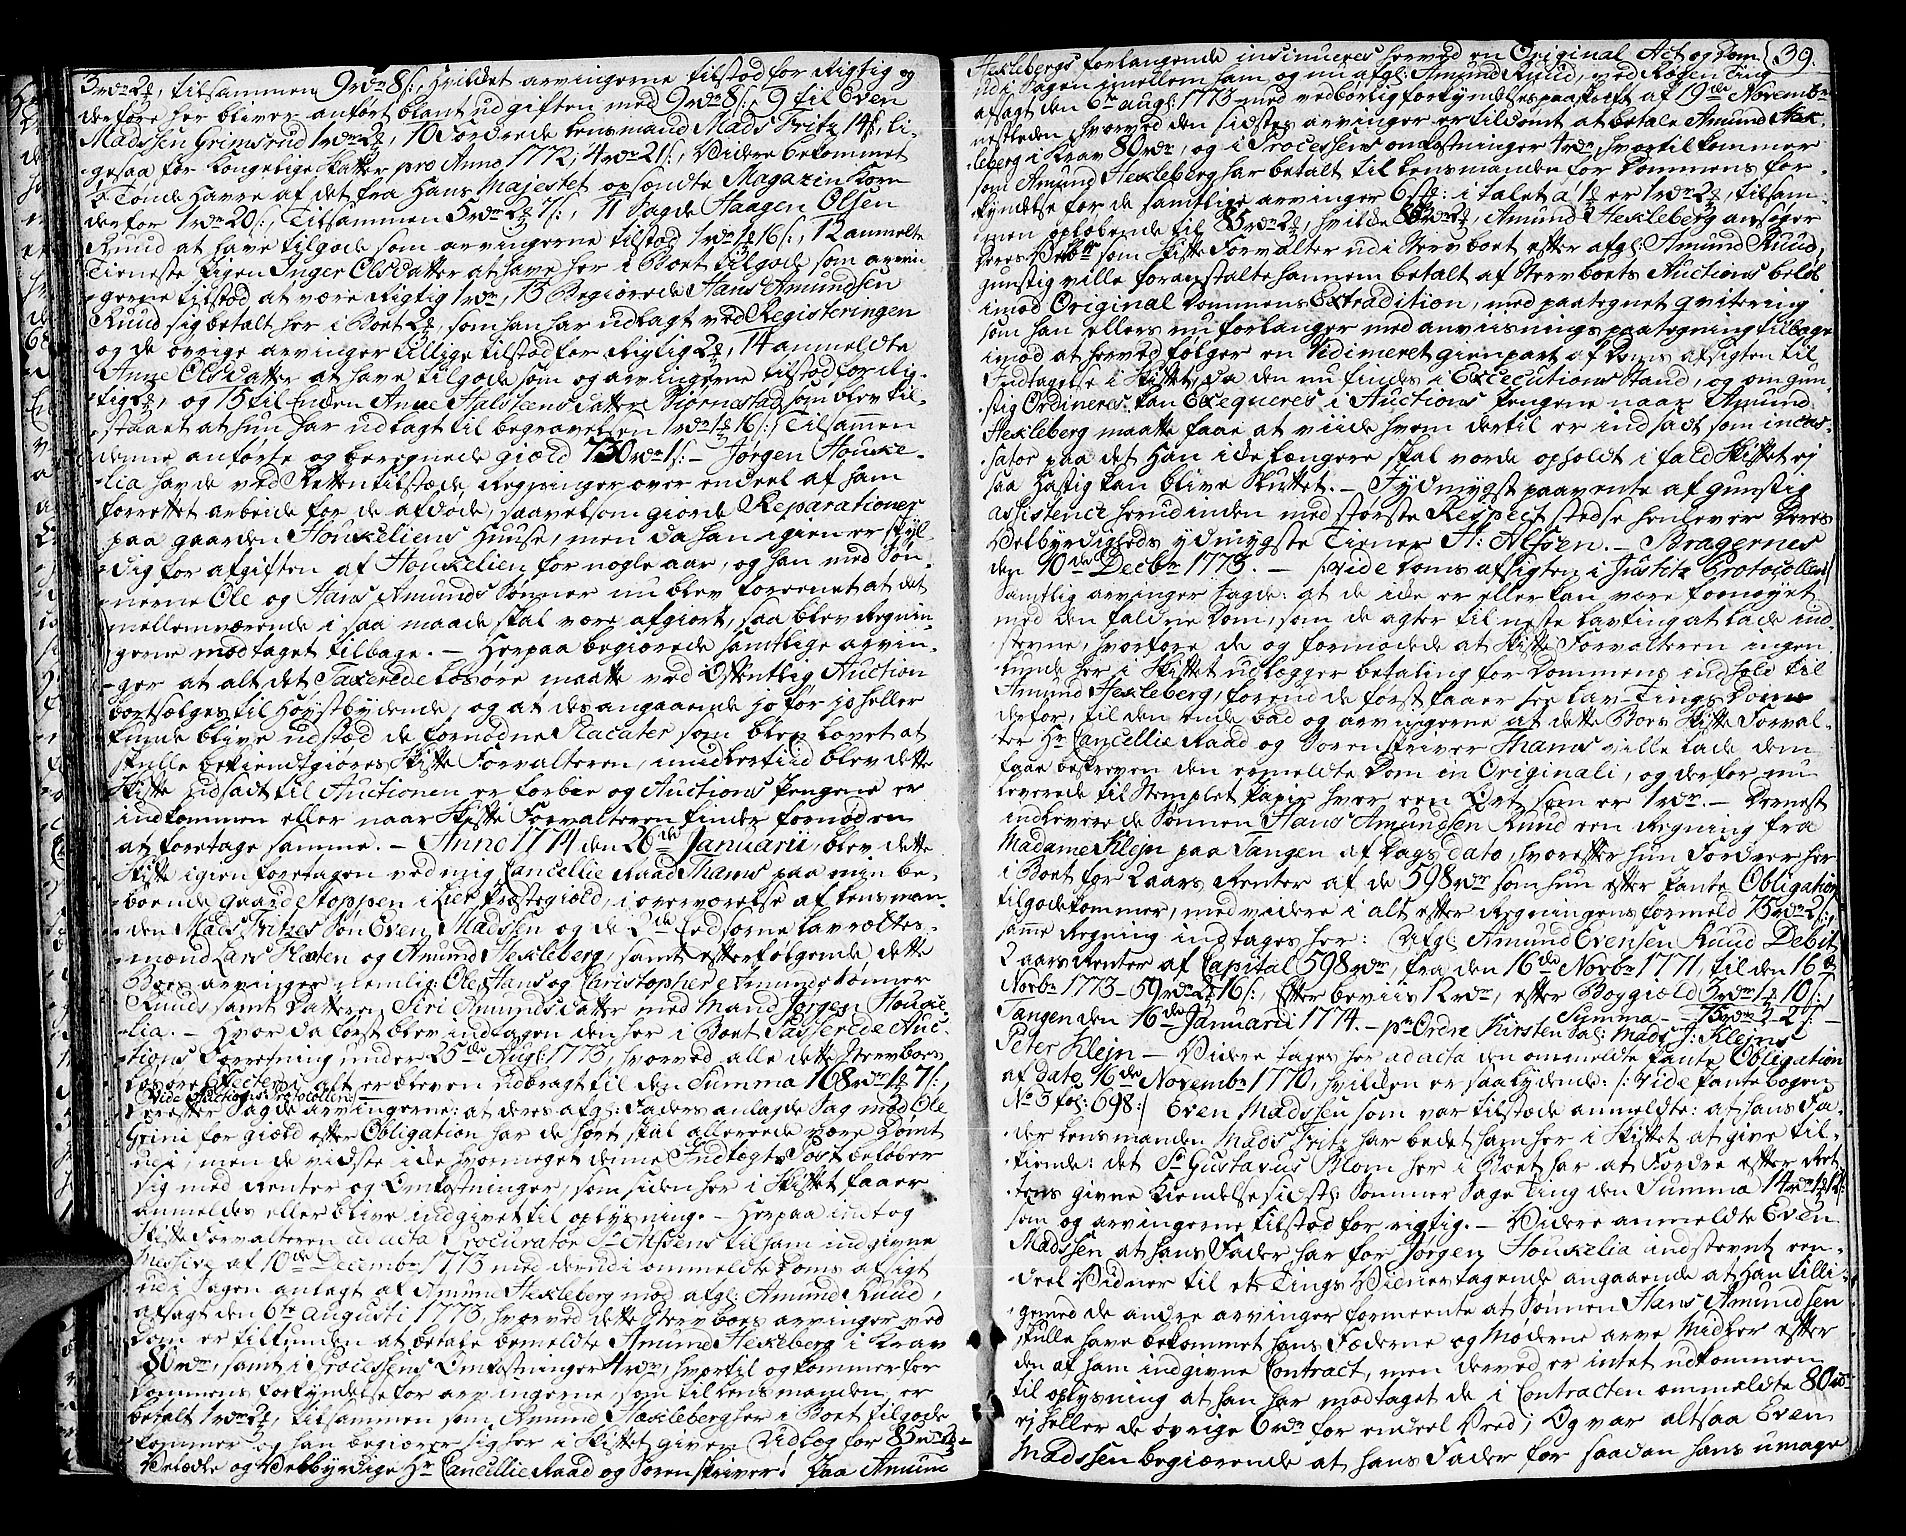 3 rdr 2 ß, tilsammen 9 rdr 8 ß, hvilket arvingerne tilstod for Rigtig og
derfore her bliver anført blant udgiften med 9 rdr 8 ß, 9 til Even
Madssen Grimsrud 1 rdr 2 ß, 10 Fordrede Lensmand Mads Fritz 14 ß, li-
gesaa for Kongelige Skatter pro Anno 1772, 4 rdr 21 ß, Videre bekommet
Tønde Havre af det fra Hans Majestet opsændte Magazin Korn
derfor 1 rdr 20 ß, Tilsammen 5 rdr 2 7 ß, 11 Sagde Haagen Olsen
Ruud at have tilgode som arvingerne tilstod 1 rdr 1 16 ß, 12 anmelte
Tieneste Pigen Inger Olsdatter at have her i Boet tilgode som arvin-
gerne tilstod at være Rigtig 1 rdr, 13 Begiærede Hans Amundsen
Ruud sig betalt her i Boet 2, som han har udlagt ved Registeringen
og de øvrige arvinger tillige tilstod for Rigtig 2, 14 anmeldte
Anne Olsdatter at have tilgode som og arvingerne tilstod for Rig-
tig, og 15 til Enken Anne Halsteensdatter Biørnestad som blev til-
staaet at hun har udlagt til begravelsen 1 rdr 1 16 ß, Tilsammen
denne anførte og beregnede giæld 730 rdr 1 ß - Jørgen Houke-
lia havde ved Retten tilstæde Regninger over endeel af ham
forrettet arbeide for de afdøde, saavelsom giorde Reparationer
paa gaarden Houkeliens Huuse, men da han igien er skyl-
dig for afgiften af Houkelien for nogle aar, og han med Søn-
nerne Ole og Hans Amunds Sønner nu blev forenet at det
mellemværende i saa maade skal være afgiort, saa blev Regnin-
gerne modtaget tilbage. - Herpaa begiærede samtlige arvin-
ger at alt det Taxerede Løsøre maatte ved Offentlig Auction
bortsælges til Høystbydende, og at desangaaende jo før jo heller
kunde blive udstæd de fornødne Placater som blev lovet at
skulle bekiendtgiøres Skifte Forvalteren, imidlertiid blev dette
Skifte udsadt til Auctionen er forbie og Auctions Pengene er
indkommen eller naar Skifte Forvalteren finder fornøden
at foretage samme. - Anno 1774 den 26de Januarii, blev dette
Skifte igien foretagen ved mig Cancellie Raad Thams paa min be-
boende gaard Stoppen i Lier Præstegiæld, i overværelse af Lensman-
den Mads Fritzes Søn Even Madssen og de 2de Eedsorne Lavrettes-
mænd Lars Fladen og Amund Hexleberg, samt efterfølgende dette
Boes arvinger nemlig: Ole, Hans og Christopher Amunds Sønner
Ruuds samt Datteren Siri Amunds datter med Mand Jørgen Houke-
lia. - Hvor da først blev indtagen den her i Boet Passerede Auc-
tions Forretning under 25de Augl: 1773, hvorved alle dette Stervboes
Løsøre Effecter i alt er bleven udbragt til den Summa 168 rdr 1 7 ß,
Vide Auctions Protocollen
Derefter Sagde arvingerne: at deres afgl: Faders anlagde Sag mod Ole
Grini for giæld efter Obligation har de hørt skal allereede være Domt
udi, men de vidste ikke hvormeget denne Indtegts Post beløber
sig med Renter og Omkostninger, som siden her i Skiftet faaer
anmeldes eller blive indgivet til oplysning. - Herpaa indtog
Skifte Forvalteren ad acta Procurator Sr Alfsens til ham indgivne
Missive af 10de Decembr 1773 med derudi ommeldte Doms afsigt
udi Sagen anlagt af Amund Hexleberg mod afgl: Amund Ruud,
afsagt den 6te augusti 1773, hvorved dette Stervboes arvinger ved
Dom er tilfunden at betale bemeldte Amund Hexleberg i Krav
80 rdr, samt i Processens Omkostninger 4 rdr, hvortil og kommer for
Dommens forkyndelse for arvingerne, som til Lensmanden er
betalt 1 rdr 2, tilsammen som Amund Hexleberg her i Boet tilgode
kommer og han begiærer sig her i Skiftet given Udlæg for 85 rdr 2 -
Velædle og Velbyrdige Hr Cancellie Raad og Sorenskriver! Paa Amund
39.
Hexlebergs forlangende insinueres herved en Original Act og Dom
udi Sagen imellem ham og nu afgl: Amund Ruud, ved Røgen Ting
afsagt den 6te augl: 1773 med vedbørlig forkyndelses paaskrift af 19de Novembr
nestleden, hvorved den sidstes arvinger er tildømt at betale Amund Hex-
leberg i Krav 80 rdr, og i Processens omkostninger 4 rdr, hvortil kommer
som Amund Hexleberg har betalt til Lensmanden for Dommens for-
kyndelse for de samtlige arvinger 6 stk: i talet á 1 er 1 rdr 2, tilsam-
men opløbende til 85 rdr 2, hvilke 85 rdr 2, Amund Hexleberg ansøger
Deres Velbr som Skifte Forvalter udi Stervboet efter afgl: Amund Ruud,
gunstig ville foranstalte hannem betalt af Stervboets Auctions beløb
imod Original Dommens Extradition, med paategnet qvitering
som han ellers nu forlanger med anviisnings paategning tilbage
imod at herved følger en Vidimeret gienpart af Doms afsigten til
Indtagelse i Skiftet, da den nu findes i Executions Stand, og om gun-
stig Ordineres: kan Exequeres i Auctions Pengene naar Amund
Hexleberg maatte faae at viide hvem dertil er indsadt som incas-
sator paa det han ikke længere skal vorde opholdt i fald Skiftet ej
saa hastig kan blive Sluttet. - Jydmygst paavente af gunstig
assistence herudinden med største Respect stedse henlever Deres
Velbyrdigheds ydmygste Tiener H: Alfsen. - Bragernes
den 10de Decbr 1773. - /: vide Doms afsigten i Justitz Protocollen :/
Samtlig arvinger sagde: at de ikke er eller kan være fornøyet
med den faldne Dom, som de agter til neste Lavting at lade ind-
stevne, hvorfore de og formodede at Skifte Forvalteren ingen-
lunde her i Skiftet udlægger betaling for Dommens indhold til
Amund Hexleberg, forend de først faaer see Lav-Tings Dom
derfor, til den ende bad og arvingerne at dette Boes Skifte Forval-
ter Hr Cancellie Raad og Sorenskriver Thams ville lade dem
faae beskreven den ermeldte Dom in Originali, og derfor nu
leverede til Stemplet Papir hver een Ort som er 1 rdr. - Dernest
indleverede Sønnen Hans Amundsen Ruud een Regning fra
Madame Klejn paa Tangen af Dags dato, hvorefter hun Fordrer her
i Boet for 2 aars Renter af de 598 rdr som hun efter Pante Obligation
tilgodekommer, med videre i alt efter Regningens formeld 75 rdr 2 ß,
samme Regning indtages her: Afgl: Amund Evensen Ruud Debit
2 aars Renter af Capital 598 rdr, fra den 16de Novbr 1771, til den 16de
Novbr 1773 - 59 rdr 3 16 ß, Efter beviis 12 rdr, efter Boggiæld 3 rdr 1 10 ß,
Summa - 75 rdr 2 2 ß -
Tangen den 16de Januarii 1774. - pr Ordre Kirsten Sal: Mads J: Klejns
Peter Klejn - Videre tages her ad acta den ommeldte Pante Obligation
af dato 16de Novembr 1770, hvilken er saalydende: /: vide Pantebogen
No 3 fol: 698 :/ Even Madssen som var tilstæde anmeldte: at hans Fa-
der Lensmanden Mads Fritz har bedet ham her i Skiftet at give til-
kiende: det Sr Gustavus Blom her i Boet har at Fordre efter Ret-
tens givne Kiendelse sidstl: Sommer Sage Ting den Summa 14 rdr 1 12 ß
som og arvingerne tilstod for rigtig. - Videre anmeldte Even
Madssen at hans Fader har for Jørgen Houkelia indstevnt een-
deel Vidner til et Tings Vidnes tagende angaaende at han tilli-
gemed de andre arvinger formeente at Sønnen Hans Amundsen
skulle have bekommet hans Fæderne og Møderne arve Midler efter
den af ham indgivne Contract, men derved er intet udkommen
til oplysning at han har modtaget de i Contracten ommeldte 80 rdr
ej heller de øvrige 6 rdr for endeel Brød; Og var altsaa Even
Madssen begiærende at hans Fader for saadan hans umage